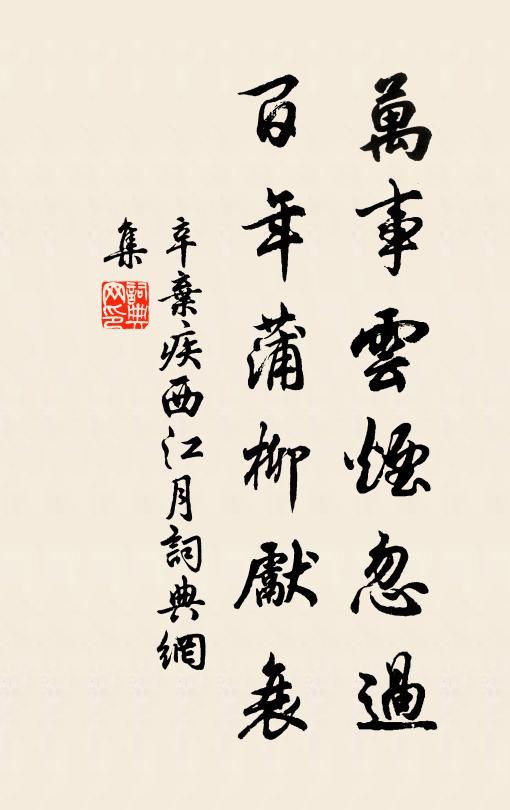 萬事雲煙忽過
百年蒲柳獻衰
辛棄疾西江月詞典網
集
詞典
网印